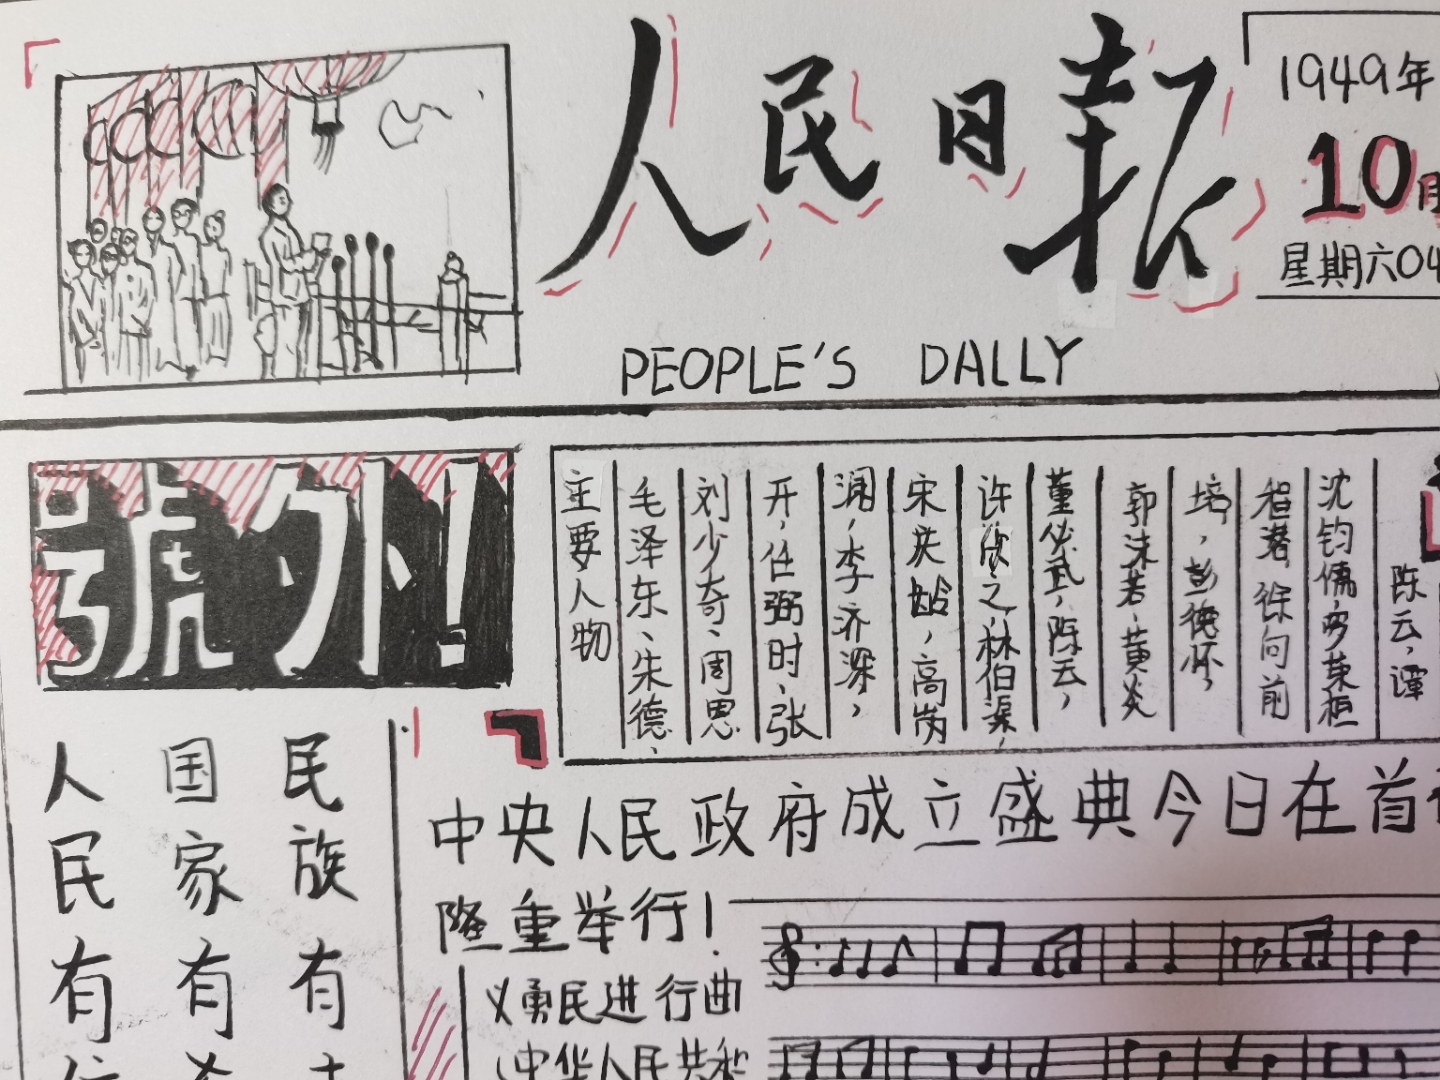 人民日報
1949年
10月
星期六04
PEOPLE'S DALLY
號外!
主要人物
毛泽东、朱德、
刘少奇、周恩
开,任弼时、张
澜,李济深,
宋庆龄,高岗
许欣之,林伯渠,
董必武,陈云,
郭沫若、黄炎
培,彭德怀,
程潜 徐向前
沈钧儒,罗荣桓
陈云,谭
中央人民政府成立盛典今日在首
隆重举行!
义勇民进行曲
(中华人民共和
民族有
国家有
人民有